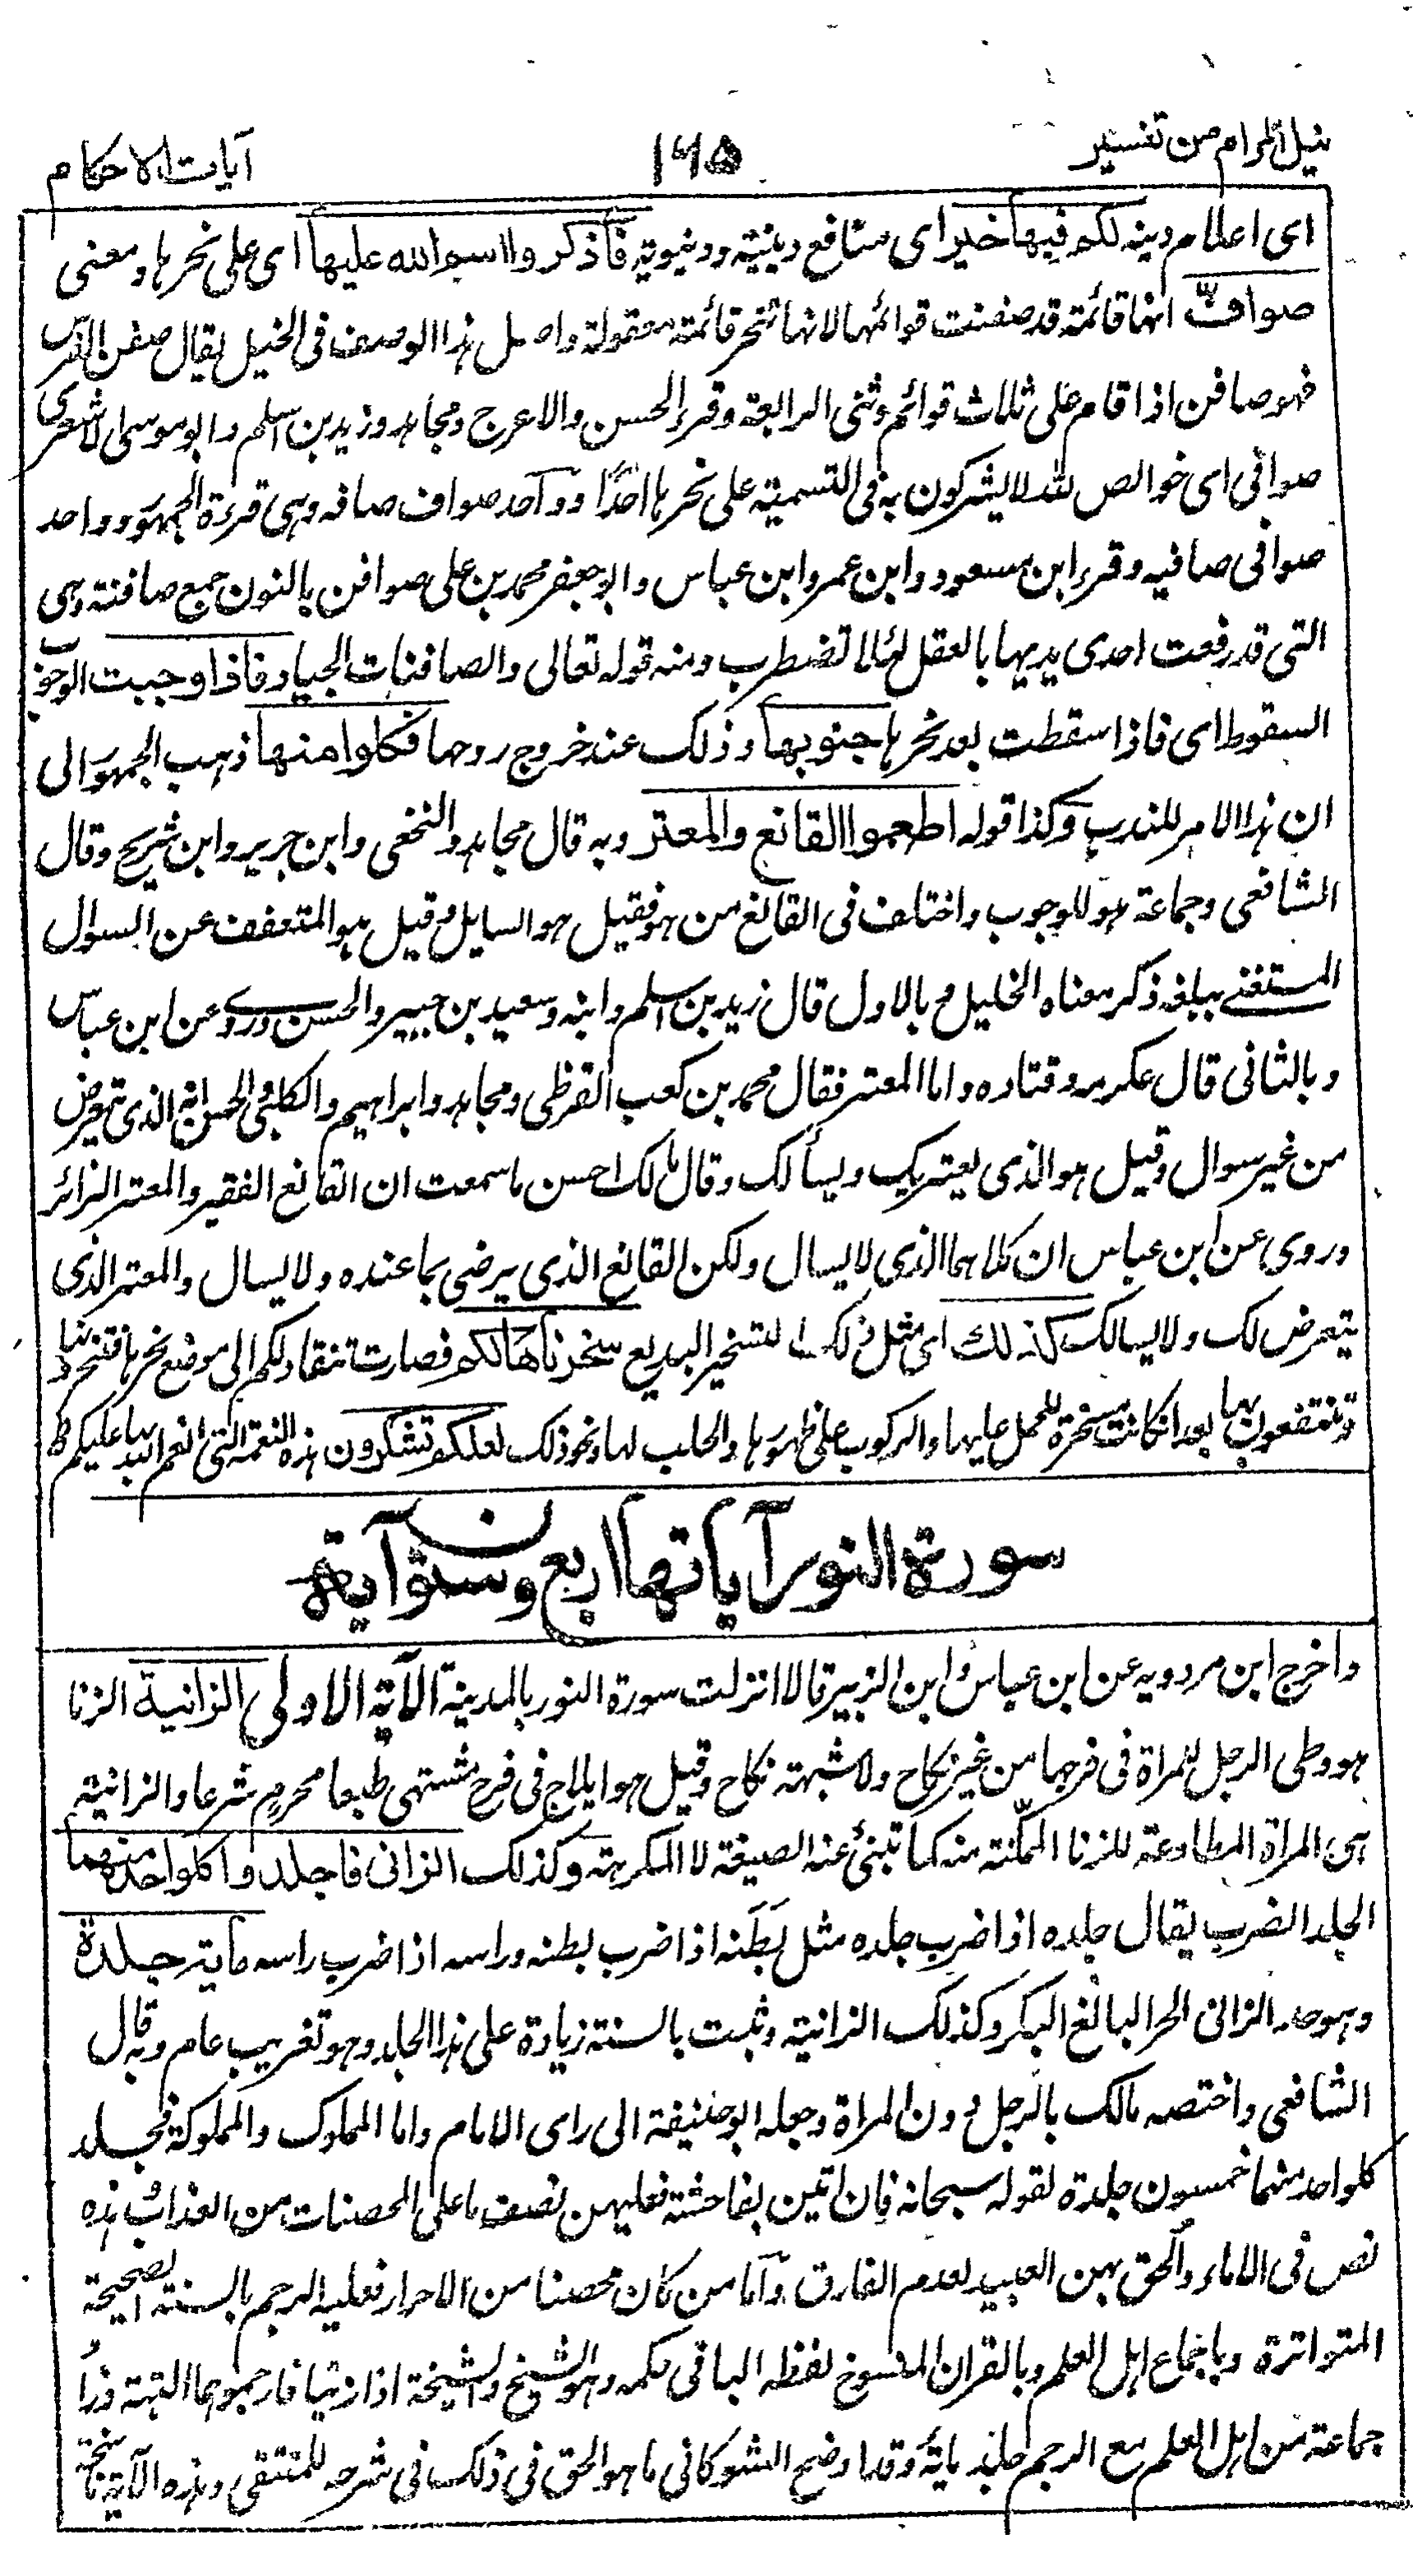 نيل المرام من تفسير
١٦٥
آيات الاحكام
اى اعلام دينه لكم فيها خير اى منافع دينية ودنيوية فاذكروا اسم الله عليها اى على نحرها ومعنى
صواف انها قائمة قد صفنت قوائمها لانها تنحر قائمة معقولة واصل هذا الوصف فى الخيل يقال صفن الفرس
فهو صافن اذا قام على ثلاث قوائم وثنى الرابعة وقرء الحسن والاعرج ومجاهد وزيد بن اسلم وابو موسى الاشعرى
صوافى اى خوالص لله لا يشركون به فى التسمية على نحرها احدًا وواحد صواف صافه وهى قرءة الجمهور وواحد
صوافى صافيه وقرء ابن مسعود وابن عمر وابن عباس وابو جعفر محمد بن على صوافن بالنون جمع صافنة وهى
التى قد رفعت احدى يديها بالعقل لئلا تضطرب ومنه قوله تعالى والصافنات الجياد فاذا وجبت الوجوب
السقوط اى فاذا سقطت بعد نحرها جنوبها وذلك عند خروج روحها فكلوا منها ذهب الجمهور الى
ان هذا الامر للندب وكذا قوله اطعموا القانع والمعتر وبه قال مجاهد والنخعى وابن جرير وابن شريح وقال
الشافعى وجماعة هو للوجوب واختلف فى القانع من هو فقيل هو السايل وقيل هو المتعفف عن السوال
المستغنى ببلغه ذكر معناه الخليل و بالاول قال زيد بن اسلم وابنه وسعيد بن جبير والحسن وروى عن ابن عباس
وبالثانى قال عكرمه وقتاده واما المعتر فقال محمد بن كعب القرظى ومجاهد وابراهيم والكلبى والحسن انه الذى يتعرض
من غير سوال وقيل هو الذى يعتريك ويسألك وقال مالك احسن ما سمعت ان القانع الفقير والمعتر الزائر
وروى عن ابن عباس ان كلاهما الذى لا يسال ولكن القانع الذى يرضى بما عنده ولا يسال والمعتر الذى
يتعرض لك ولا يسالك كذلك اى مثل ذلك التسخير البديع سخرناها لكم فصارت تنقاد لكم الى موضع نحرها فتنحرونها
وتنتفعون بها بعد ان كانت مسخرة للحمل عليها والركوب على ظهورها والحلب لها ونحو ذلك لعلكم تشكرون هذه النعمة التى انعم الله بها عليكم
سورة النور آياتها اربع وستون آية
واخرج ابن مردويه عن ابن عباس وابن الزبير قالا انزلت سورة النور بالمدينة الآية الاولى الزانية الزنا
هو وطى الرجل للمراة فى فرجها من غير نكاح ولا شبهته نكاح وقيل هو ايلاج فى فرج مشتهى طبعا محرم شرعا والزانية
هى المراة المطاوعة للزنا الممكّنة منه كما تنبئ عنه الصيغة لا المكرهته وكذلك الزانى فاجلدوا كلواحد منهما
الجلد الضرب يقال جلده اذا ضرب جلده مثل بَطَنه اذا ضرب بطنه وراسه اذا ضرب راسه ماية جلدة
وهو حد الزانى الحر البالغ البكر وكذلك الزانية وثبت بالسنة زيادة على هذا الجلد وهو تغريب عام وبه قال
الشافعى واختصه مالك بالرجل دون المراة وجعله ابو حنيفة الى راى الامام واما المملوك والمملوكة فجلد
كلواحد منهما خمسون جلدة لقوله سبحانه فان اتين بفاحشة فعليهن نصف ما على المحصنات من العذاب هذه
نص فى الاماء والحق بهن العبيد لعدم الفارق واما من كان محصنا من الاحرار فعليه الرجم بالسنة الصحيحة
المتواترة وباجماع اهل العلم وبالقران المنسوخ لفظه الباقى حكمه وهو الشيخ والشيخة اذا زنيا فارجموهما البتة وزاد
جماعة من اهل العلم مع الرجم جلد ماية وقد اوضح الشوكانى ما هو الحق فى ذلك فى شرحه للمنتقى وهذه الآية ناسخة